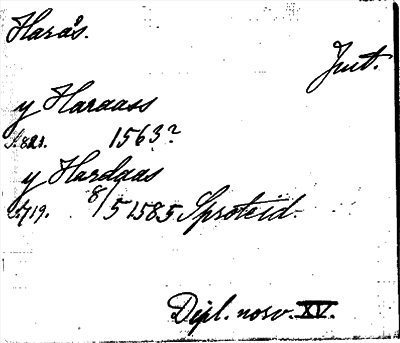 Haraˢs.
Jut.
y Haraass
S. 823. 1563?
y Hardaas
S. 719. 8/5 1585. Sproteid.
Dipl. norv. XV.